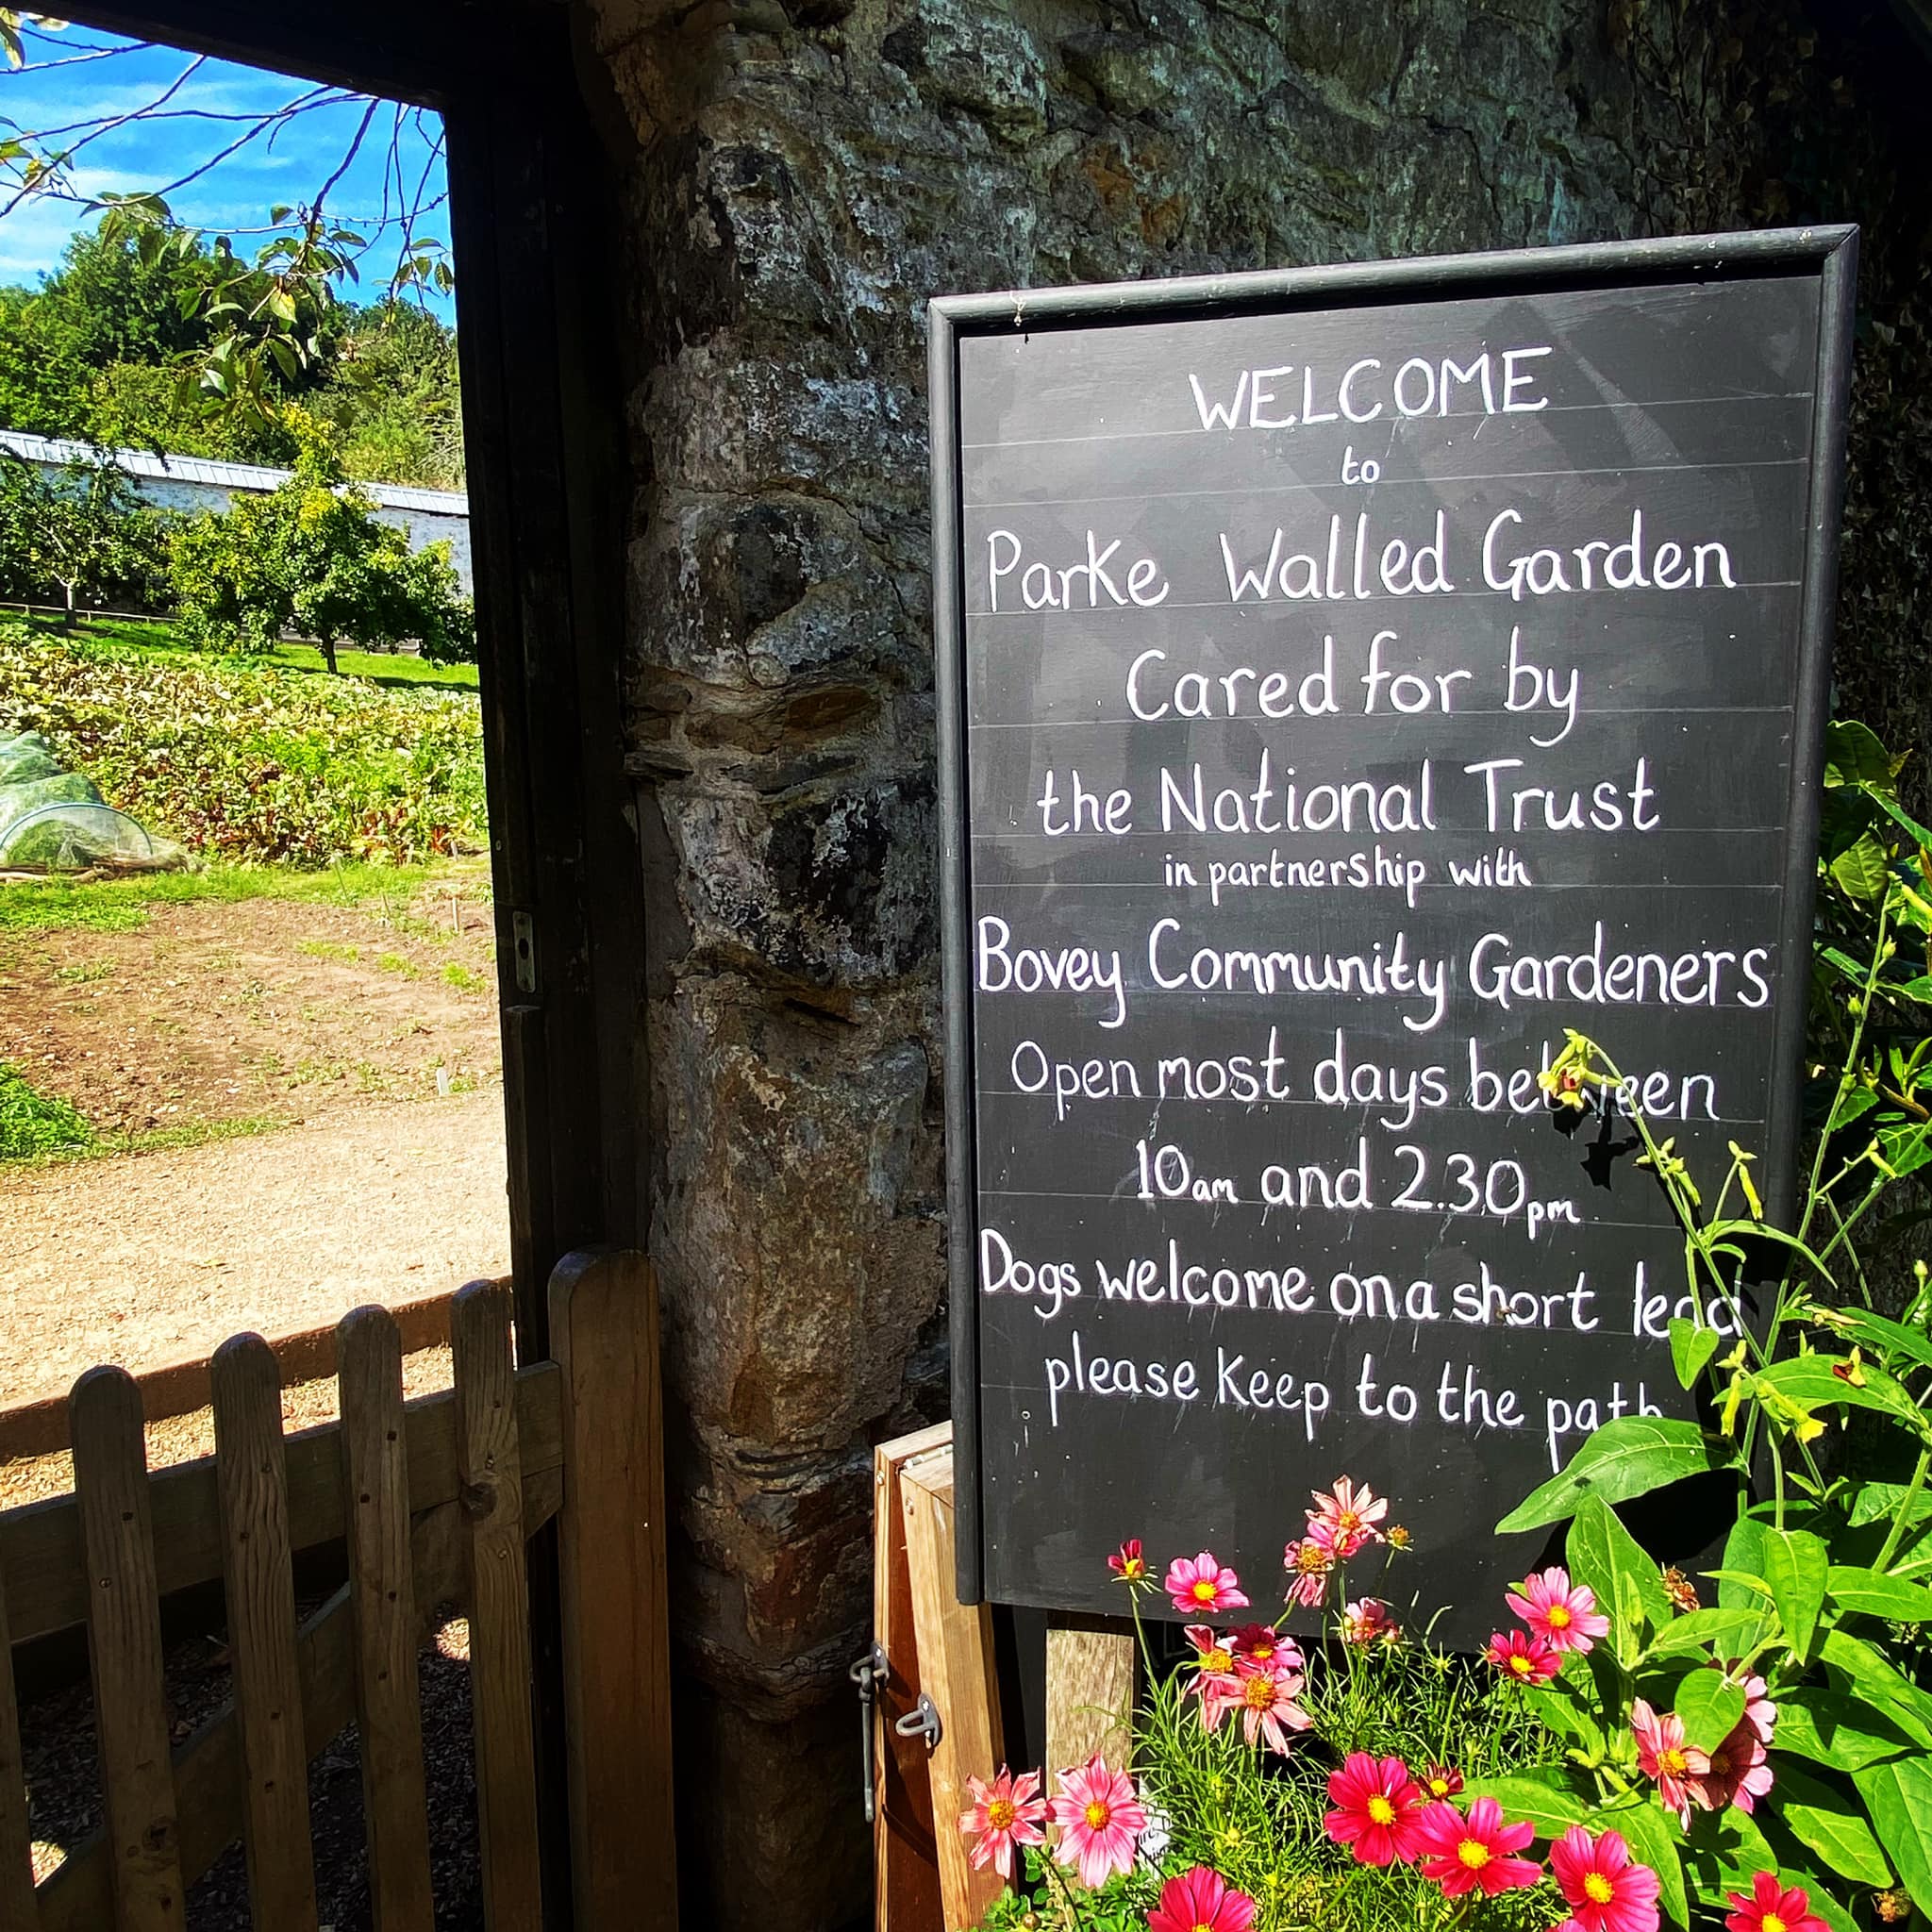 WELCOME
to
Parke Walled Garden
Cared for by
the National Trust
in partnership with
Bovey Community Gardeners
Open most days between
10am and 2.30pm
Dogs welcome on a short lead
please keep to the path